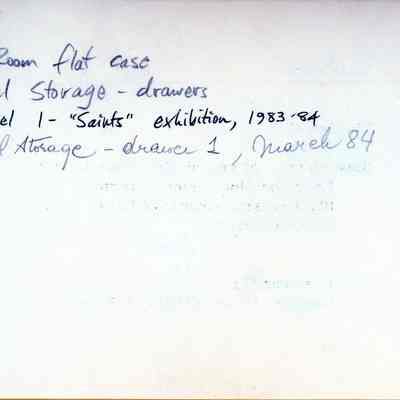 Room flat case
l Storage - drawers
el 1 - "Saints" exhibition, 1983-84
l Storage - drawer 1, March 84